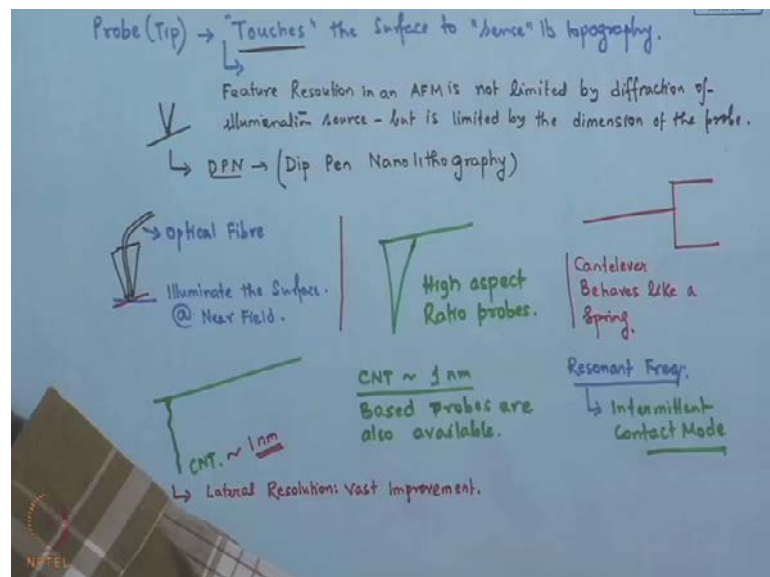 Probe (Tip) → "Touches" the Surface to "sence" its topography.
Feature Resoution in an AFM is not limited by diffraction of
illumination source - but is limited by the dimension of the probe.
DPN → (Dip Pen Nanolithography)
Optical Fibre
Illuminate the Surface.
@ Near Field.
High aspect
Ratio probes.
Cantelever
Behaves like a
Spring.
CNT. ~ 1 nm
Lateral Resolution: Vast Improvement.
CNT ~ 1 nm
Based probes are
also available.
Resonant Freqr.
Intermittent
Contact Mode
NPTEL